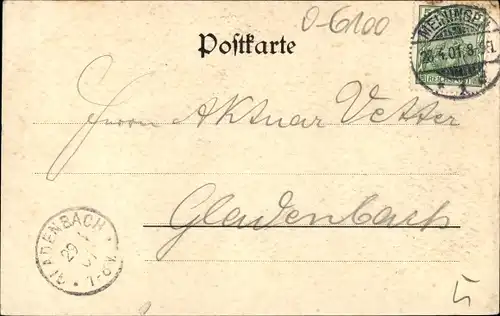 0-6100
Postkarte
MEININGEN
26.4.01. 8-9N.
Herrn Aktuar Vetter
Gladenbach
GLADENBACH